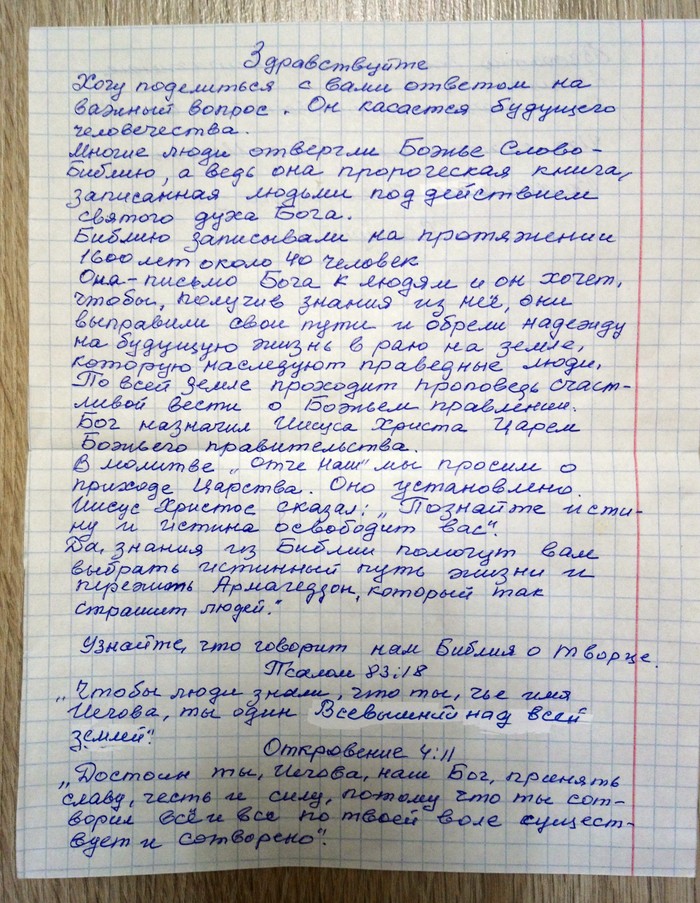 Здравствуйте
Хочу поделиться с вами ответом на
важный вопрос. Он касается будущего
человечества.
Многие люди отвергли Божье Слово-
Библию, а ведь она пророческая книга,
записанная людьми под действием
святого духа Бога.
Библию записывали на протяжении
1600 лет около 40 человек
Она-письмо Бога к людям и он хочет,
чтобы, получив знания из неё, они
выправили свои пути и обрели надежду
на будущую жизнь в раю на земле,
которую наследуют праведные люди.
По всей земле проходит проповедь счаст-
ливой вести о Божьем правлении.
Бог назначил Иисуса Христа Царем
Божьего правительства.
В молитве „Отче наш" мы просим о
приходе Царства. Оно установлено.
Иисус Христос сказал: „Познайте исти-
ну и истина освободит вас".
Да, знания из Библии помогут вам
выбрать истинный путь жизни и
пережить Армагеддон, который так
страшит людей."
Узнайте, что говорит нам Библия о творце.
Псалом 83:18
„Чтобы люди знали, что ты, чье имя
Иегова, ты один Всевышний над всей
землей".
Откровение 4:11
„Достоин ты, Иегова, наш Бог, принять
славу, честь и силу, потому что ты сот-
ворил всё и все по твоей воле сущест-
вует и сотворено".